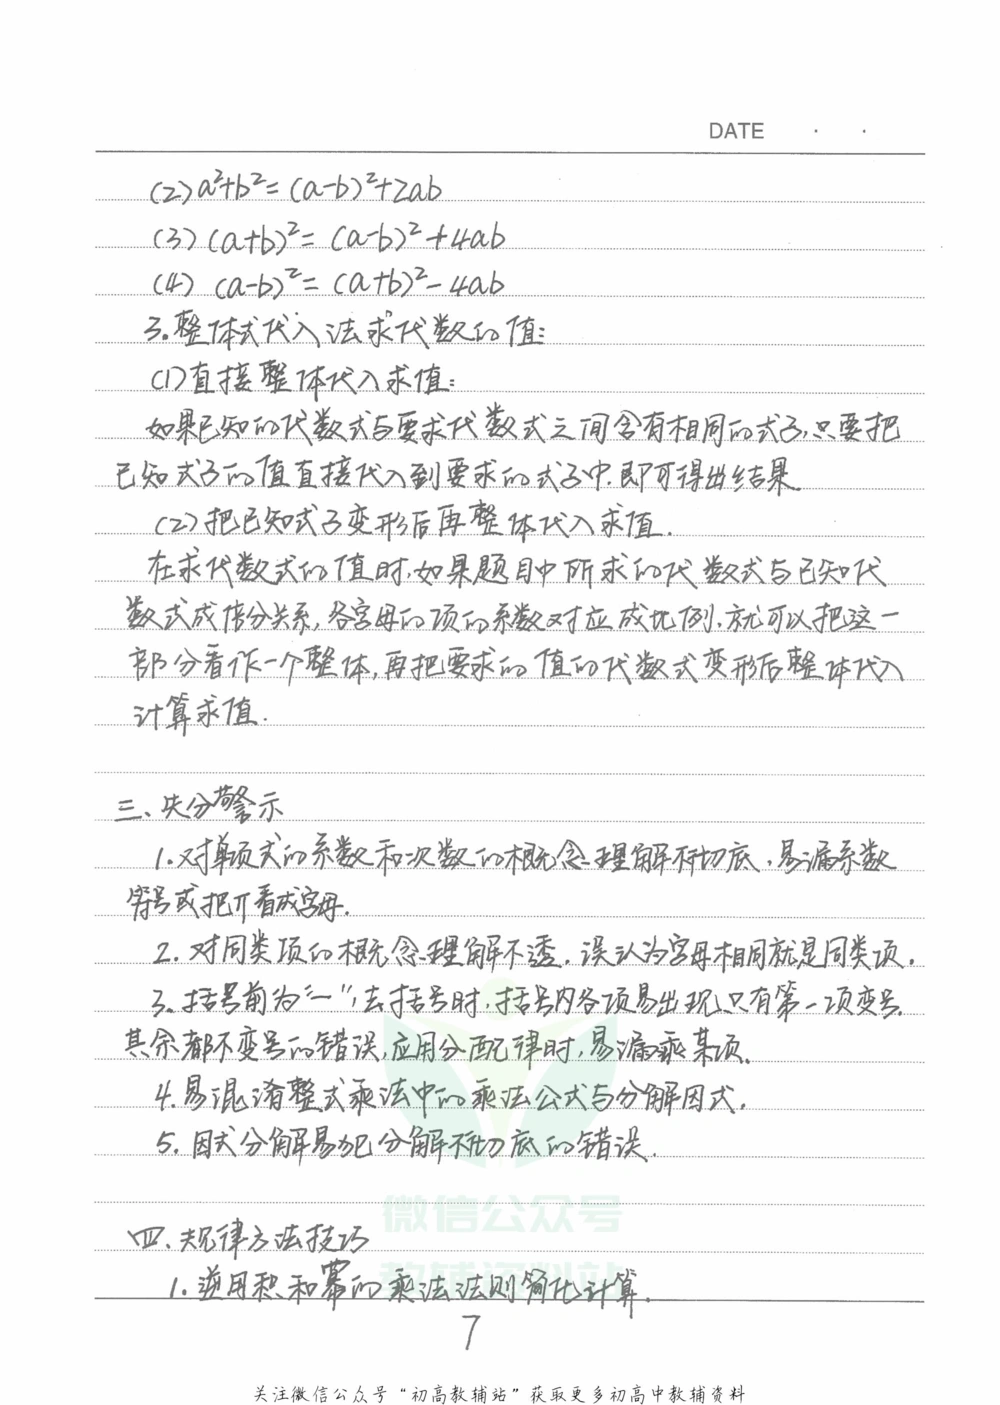 DATE · ·
(2) a²+b²=(a-b)²+2ab
(3) (a+b)²=(a-b)²+4ab
(4) (a-b)²=(a+b)²-4ab
3.整体式代入法求代数的值:
(1)直接整体代入求值:
如果已知的代数式与要求代数式之间含有相同的式子,只要把
已知式子的值直接代入到要求的式子中.即可得出结果.
(2)把已知式子变形后再整体代入求值.
在求代数式的值时,如果题目中所求的代数式与已知代
数式成倍分关系,各字母的项的系数对应成比例.就可以把这一
部分看作一个整体,再把要求的值的代数式变形后整体代入
计算求值.
三、失分警示
1.对单项式的系数和次数的概念理解不切底,易漏系数
符号或把π看成字母.
2.对同类项的概念理解不透.误认为字母相同就是同类项.
3.括号前为"一",去括号时,括号内各项易出现只有第一项变号.
其余都不变号的错误,应用分配律时,易漏乘某项.
4.易混淆整式乘法中的乘法公式与分解因式.
5.因式分解易犯分解不切底的错误.
微信公众号
四、规律方法技巧
教辅资料站
1.逆用积和幂的乘法法则简化计算.
7
关注微信公众号“初高教辅站”获取更多初高中教辅资料